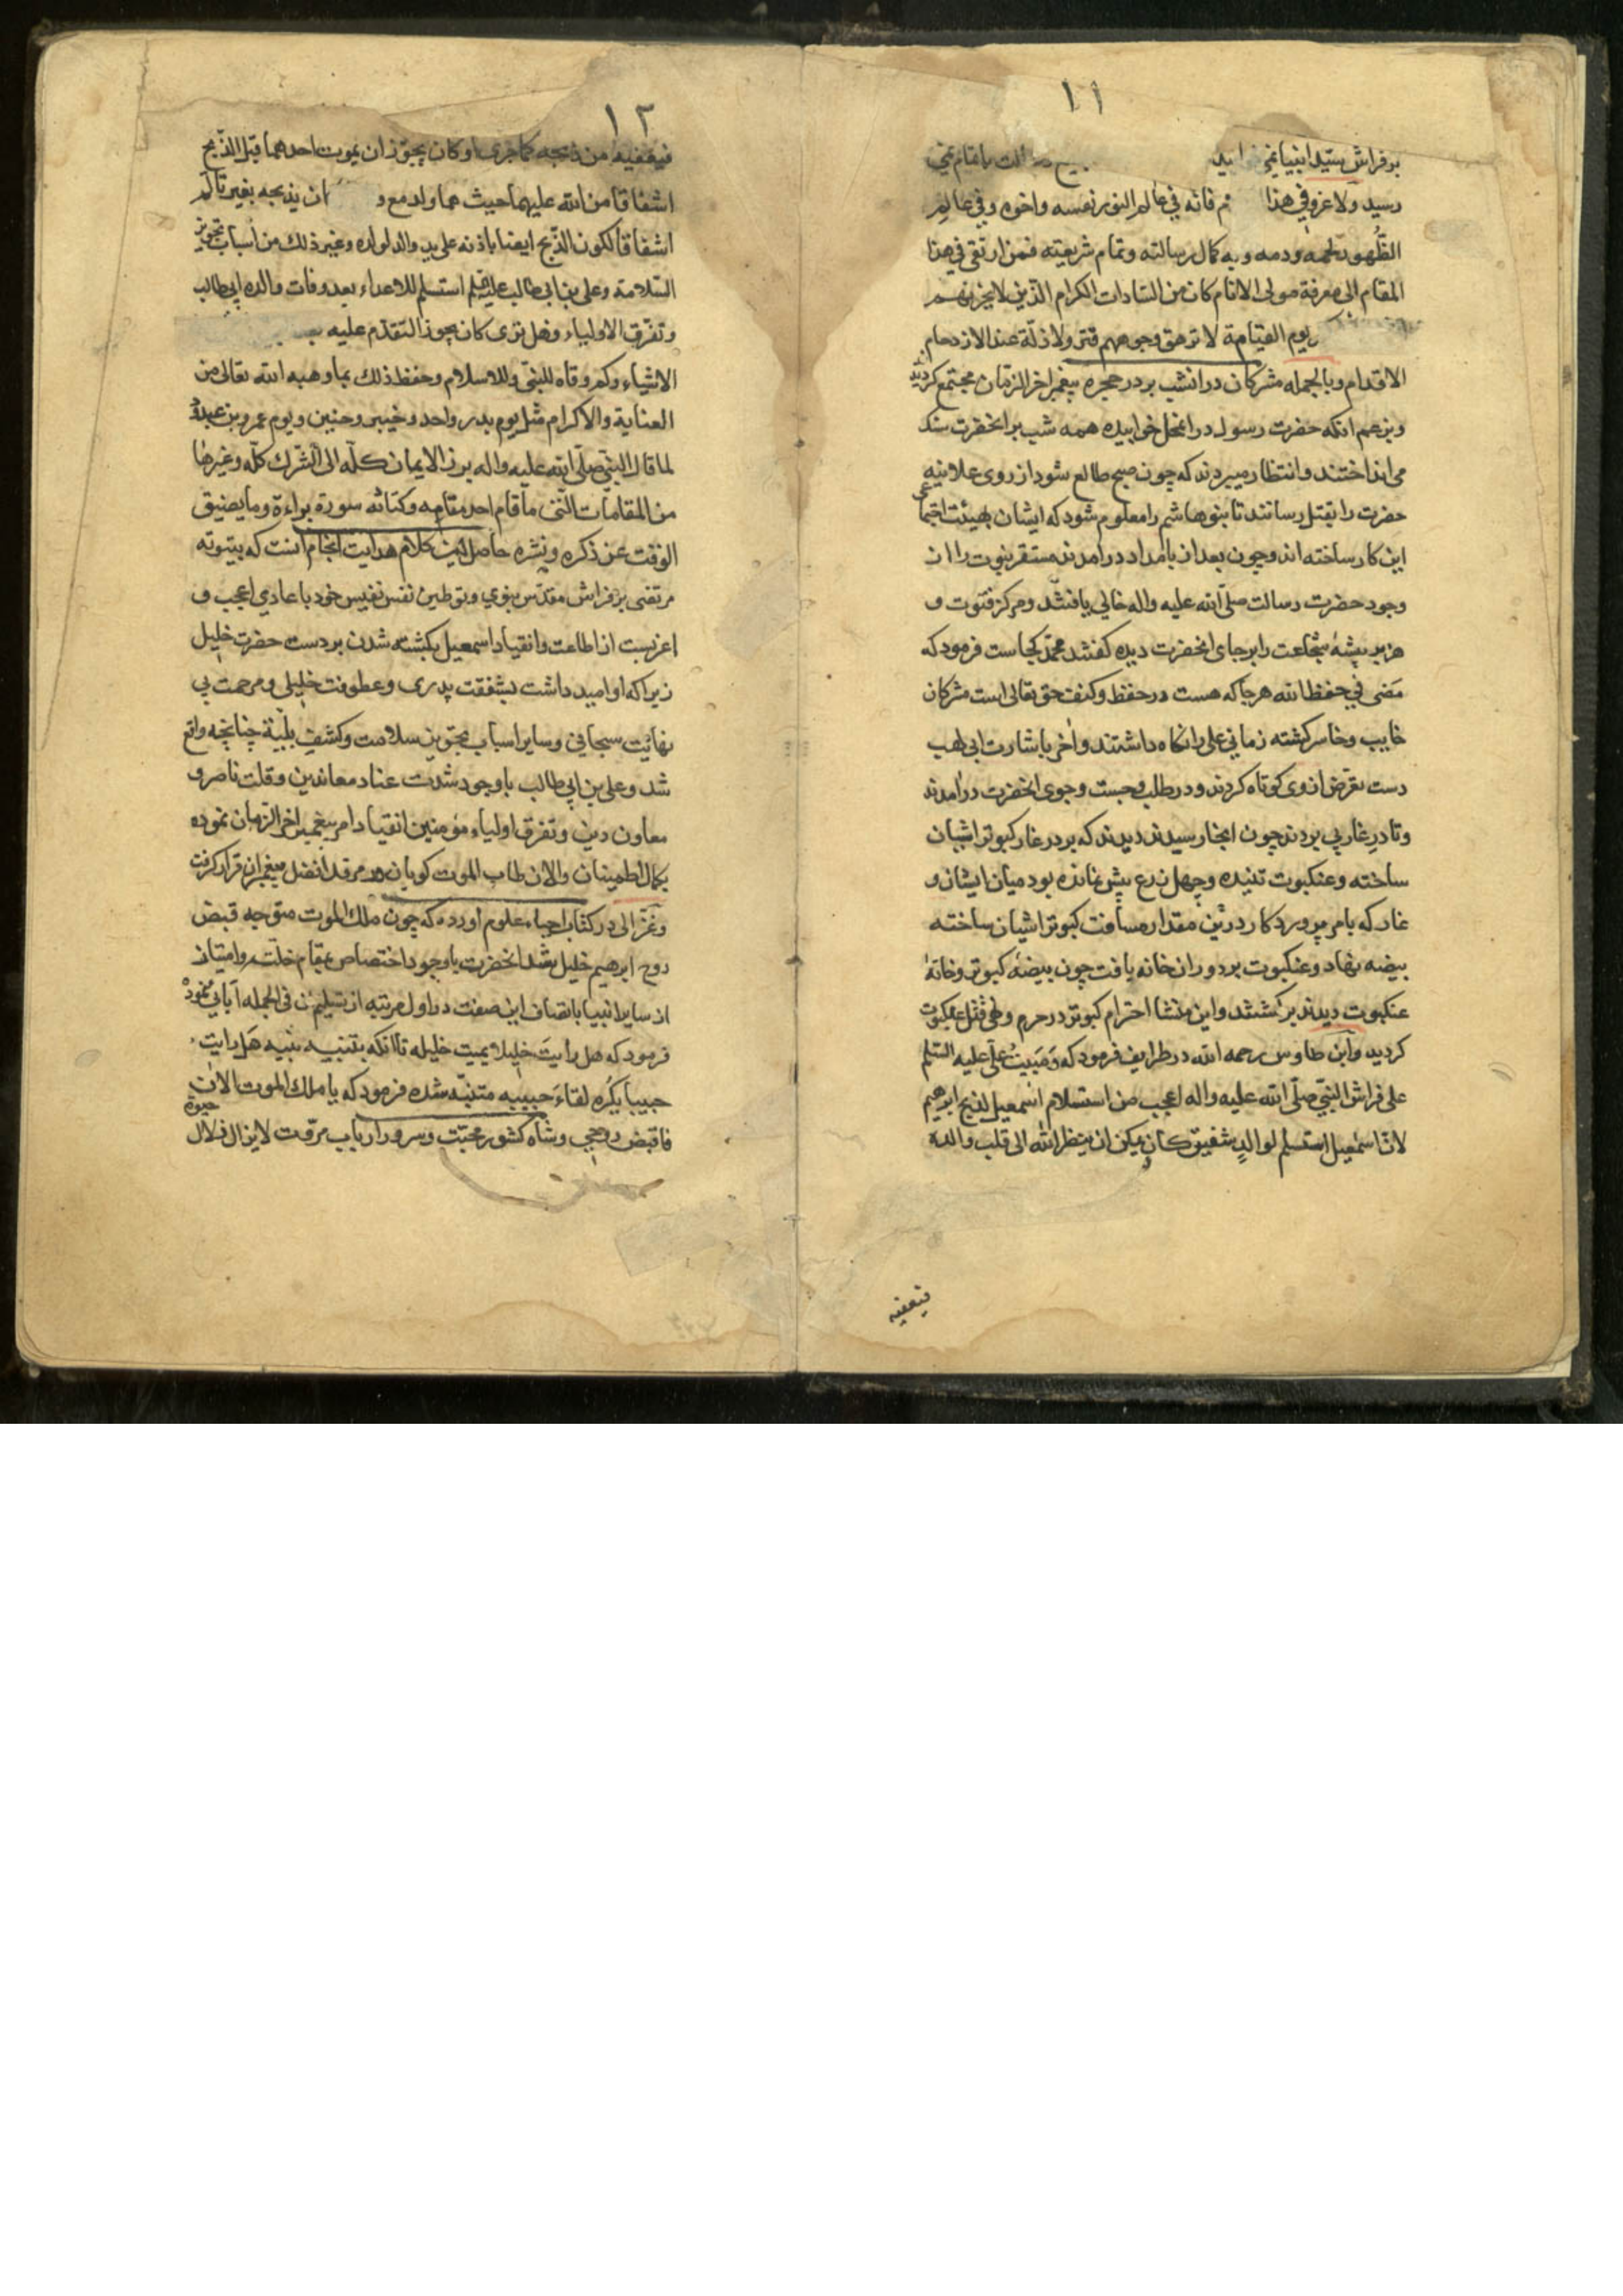 ۱۱
بر فراش سید انبیا
رسید ولا غرو فی هذا فانه فی عالم النور نفسه واخوه وفی عالم
الظهور لحمه ودمه وبه کمال رسالته وتمام شریعته فمن ارتقی فی هذا
المقام الی معرفة مولی الانام کان من السادات الکرام الذین لا یحزنهم
یوم القیامة لا ترهق وجوههم قتر ولا ذلة عند الازدحام
الاقدام وبالجمله مشرکان در انشب بر در حجره پیغمبر اخر الزمان مجتمع کردیدند
وبزعم انکه حضرت رسول در انمحل خوابیده همه شب بر انحضرت سنک
می انداختند وانتظار میبردند که چون صبح طالع شود از روی علانیه
حضرت را بقتل رسانند تا بنوهاشم را معلوم شود که ایشان بهیئت اجتماعی
این کار ساخته اند وچون بعد از بامداد درامدند مستقر نبوت را از
وجود حضرت رسالت صلی الله علیه واله خالی یافتند ومرکز فتوت و
هزبر بیشهٔ شجاعت را بر جای انحضرت دیده کفتند محمد کجاست فرمود که
مضی فی حفظ الله هرجا که هست در حفظ وکنف حق تعالی است مشرکان
خایب وخاسر کشته زمانی علی را نکاه داشتند واخر باشارت ابی لهب
دست تعرض از وی کوتاه کردند ودر طلب وجست وجوی انحضرت درامدند
وتا در غار پی بردند چون انجا رسیدند دیدند که بر در غار کبوتر اشیان
ساخته وعنکبوت تنیده وچهل ذرع بیش نمانده بود میان ایشان و
غار که بامر پرورد کار درین مقدار مسافت کبوتر اشیان ساخته
بیضه نهاد وعنکبوت بر در ان خانه یافت چون بیضهٔ کبوتر وخانهٔ
عنکبوت دیدند بر کشتند واین منشا احترام کبوتر در حرم ونهی قتل عنکبوت
کردید وابن طاوس رحمه الله در طرایف فرمود که ومبیت علی علیه السلم
علی فراش النبی صلی الله علیه واله اعجب من استسلام اسمعیل لذبح ابرهیم
لان اسمعیل استسلم لوالد شفیق کان یمکن ان ینظر الله الی قلب والده
فیعفیه
۱۲
فیعفیه من ذبحه کما جری او کان یجوز ان یموت احدهما قبل الذبح
اشفاقا من الله علیهما حیث هما ولد مع و ان یذبحه بغیر تالم
اشفاقا لکون الذبح ایضا باذنه علی ید والد لولده وغیر ذلک من اسباب تجویز
السلامة وعلی بن ابی طالب علیه السلم استسلم للاعداء بعد وفات والده ابی طالب
وتفرق الاولیاء وهل تری کان یجوز التقدم علیه
الاشیاء وکم وقاه للنبی وللاسلام وحفظ ذلک بما وهبه الله تعالی من
العنایة والاکرام مثل یوم بدر واحد وخیبر وحنین ویوم عمرو بن عبدود
لما قال النبی صلی الله علیه واله برز الایمان کله الی الشرک کله وغیرها
من المقامات التی ما قام احد مقامه وکتائه سورة براءة وما یضیق
الوقت عن ذکره ونشره حاصل این کلام هدایت انجام انست که بیتوته
مرتضی بر فراش مقدس نبوی وتوطین نفس نفیس خود با عادی اعجب و
اغربست از اطاعت وانقیاد اسمعیل بکشته شدن بر دست حضرت خلیل
زیرا که او امید داشت بشفقت پدری وعطوفت خلیلی ومرحمت بی
نهایت سبحانی وسایر اسباب تجویز سلامت وکشف بلیة چنانچه واقع
شد وعلی بن ابی طالب باوجود شدت عناد معاندین وقلت ناصر و
معاون دین وتفرق اولیاء مؤمنین انقیاد امر پیغمبر اخر الزمان نموده
بکمال اطمینان والان طاب الموت کویان در مرقد افضل پیغمبران قرار کرفت
وغزالی در کتاب احیاء علوم اورده که چون ملک الموت متوجه قبض
روح ابرهیم خلیل شد انحضرت باوجود اختصاص بمقام خلت وامتیاز
از سایر انبیا باتصاف این صفت در اول مرتبه از تسلیم ان فی الجمله آبائی نموده
فرمود که هل رایت خلیلا یمیت خلیله تا انکه بتنبیه نبیه هل رایت
حبیبا یکره لقاء حبیبه متنبه شده فرمود که یا ملک الموت الان
فاقبض روحی وشاه کشور محبت وسرور ارباب مروت لا یزال زلال
حیوة